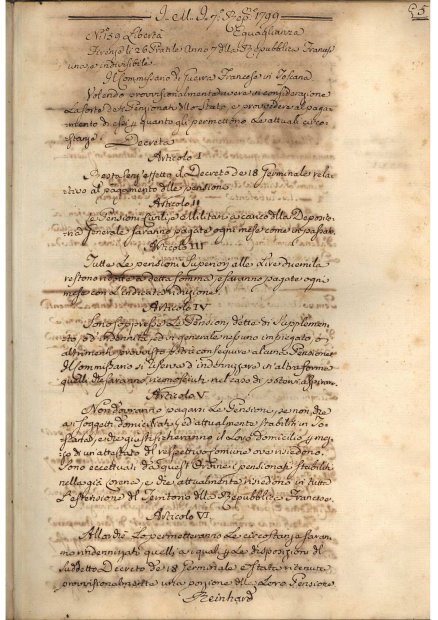 25
1799
N.° 59 Libertà Eguaglianza
Firenze li 26 Pratile Anno 7 della Repubblica Francese
una, e indivisibile
Il Commissario di Guerra Francese in Toscana
Volendo provvisionalmente avere in considerazione
la sorte dei Pensionati dello Stato, e provvedere al paga-
mento di essi, quanto gli permettono le attuali circo-
stanze
Decreta
Articolo I
Resta senz'effetto il Decreto de 18 Germinale rela-
tivo al pagamento delle pensioni
Articolo II
Le Pensioni Civili, e Militari a carico della Deposite-
ria Generale saranno pagate ogni mese come in passato
Articolo III
Tutte le pensioni Superiori alle Lire duemila
restono ridotte a detta somma, e saranno pagate ogni
mese con l'indicata riduzione
Articolo IV
Sono soppresse le Pensioni dette di Supplemen-
to, ed indennità, ed in generale nessuno impiegato, o
altrimenti provvisto potrà conseguire alcuna Pensione
Il Commissario si riserva d'indennizzare in altra forma
quelli che saranno riconosciuti nel caso di potervi aspirare
Articolo V
Non dovranno pagarsi le Pensioni, se non, che
a' Soggetti domiciliati, ed attualmente stabiliti in To-
scana, e che giustificheranno il loro domicilio per mez-
zo di un attestato del respettivo Comune ove risiedono
Sono eccettuati da quest'Ordine i pensionati stabiliti
nella già Corsica, e che attualmente risiedono in tutta
l'estensione del Territorio della Repubblica Francese
Articolo VI
Allorchè lo permetteranno le circostanze saran-
no indennizzati quelli, ai quali per le disposizioni del
suddetto Decreto de 18 Germinale è stata ritenuta
provvisionalmente una porzione della loro Pensione
Reinhard